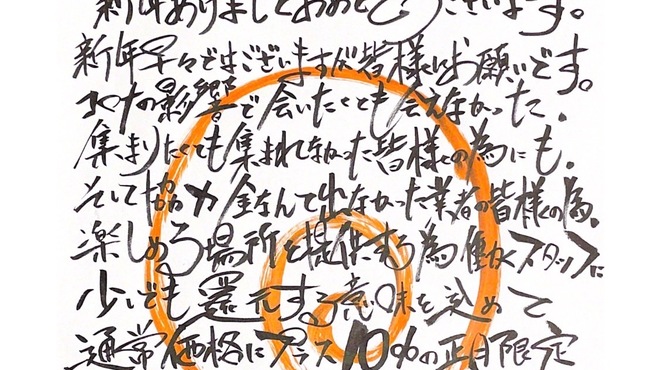 新年あけましておめでとうございます。
新年早々ではございますが皆様にお願いです。
コロナの影響で会いたくても会えなかった、
集まりたくても集まれなかった皆様との為にも、
そして協力金なんて出なかった業者の皆様の為、
楽しめる場所を提供する為働くスタッフに
少しでも還元する意味を込めて
通常価格にプラス10%の正月限定